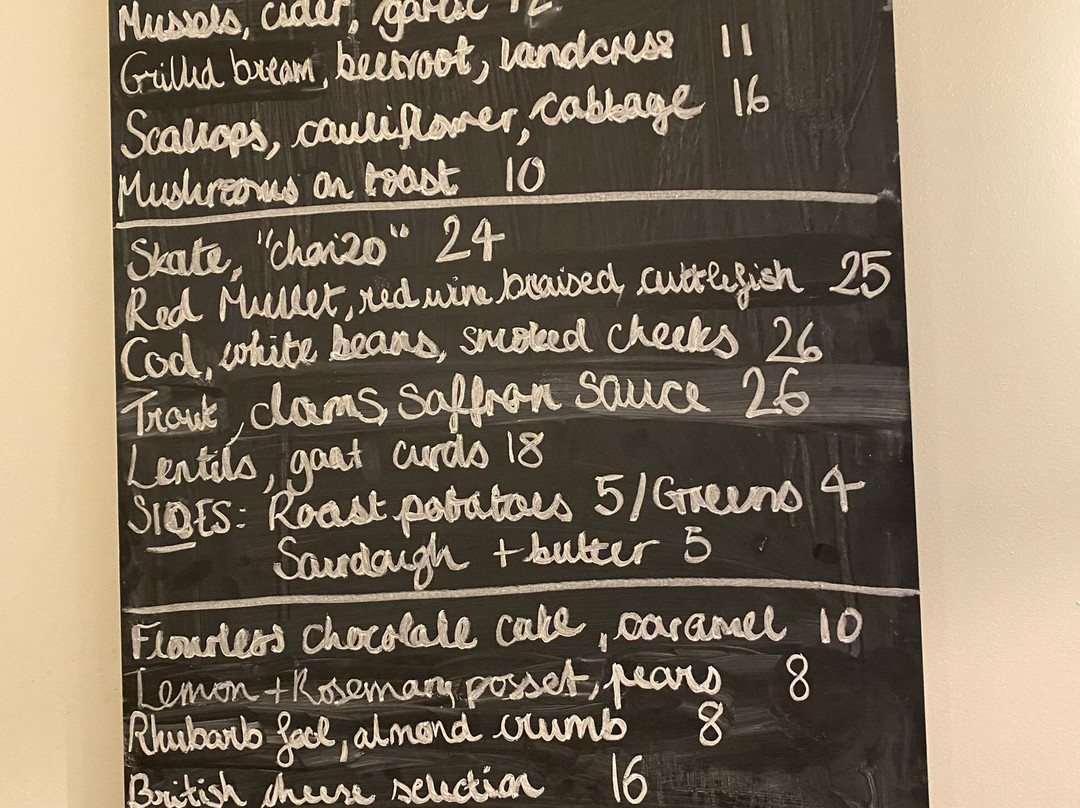 Mussels, cider, garlic 12
Grilled bream, beetroot, landcress 11
Scallops, cauliflower, cabbage 16
Mushrooms on toast 10
Skate, "chorizo" 24
Red Mullet, red wine braised, cuttlefish 25
Cod, white beans, smoked cheeks 26
Trout, clams, saffron sauce 26
Lentils, goat curds 18
SIDES: Roast potatoes 5/Greens 4
Sourdough + butter 5
Flourless chocolate cake, caramel 10
Lemon + Rosemary posset, pears 8
Rhubarb fool, almond crumb 8
British cheese selection 16